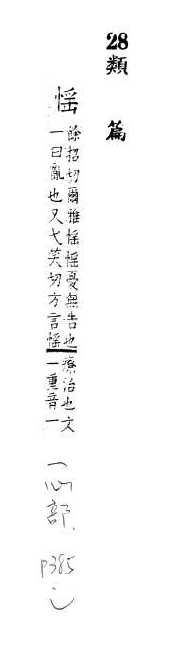 28
類篇
愮
餘招切爾雅愮愮憂無告也
一曰亂也又弋笑切方言愮療治也文
一重音一
心部
p385